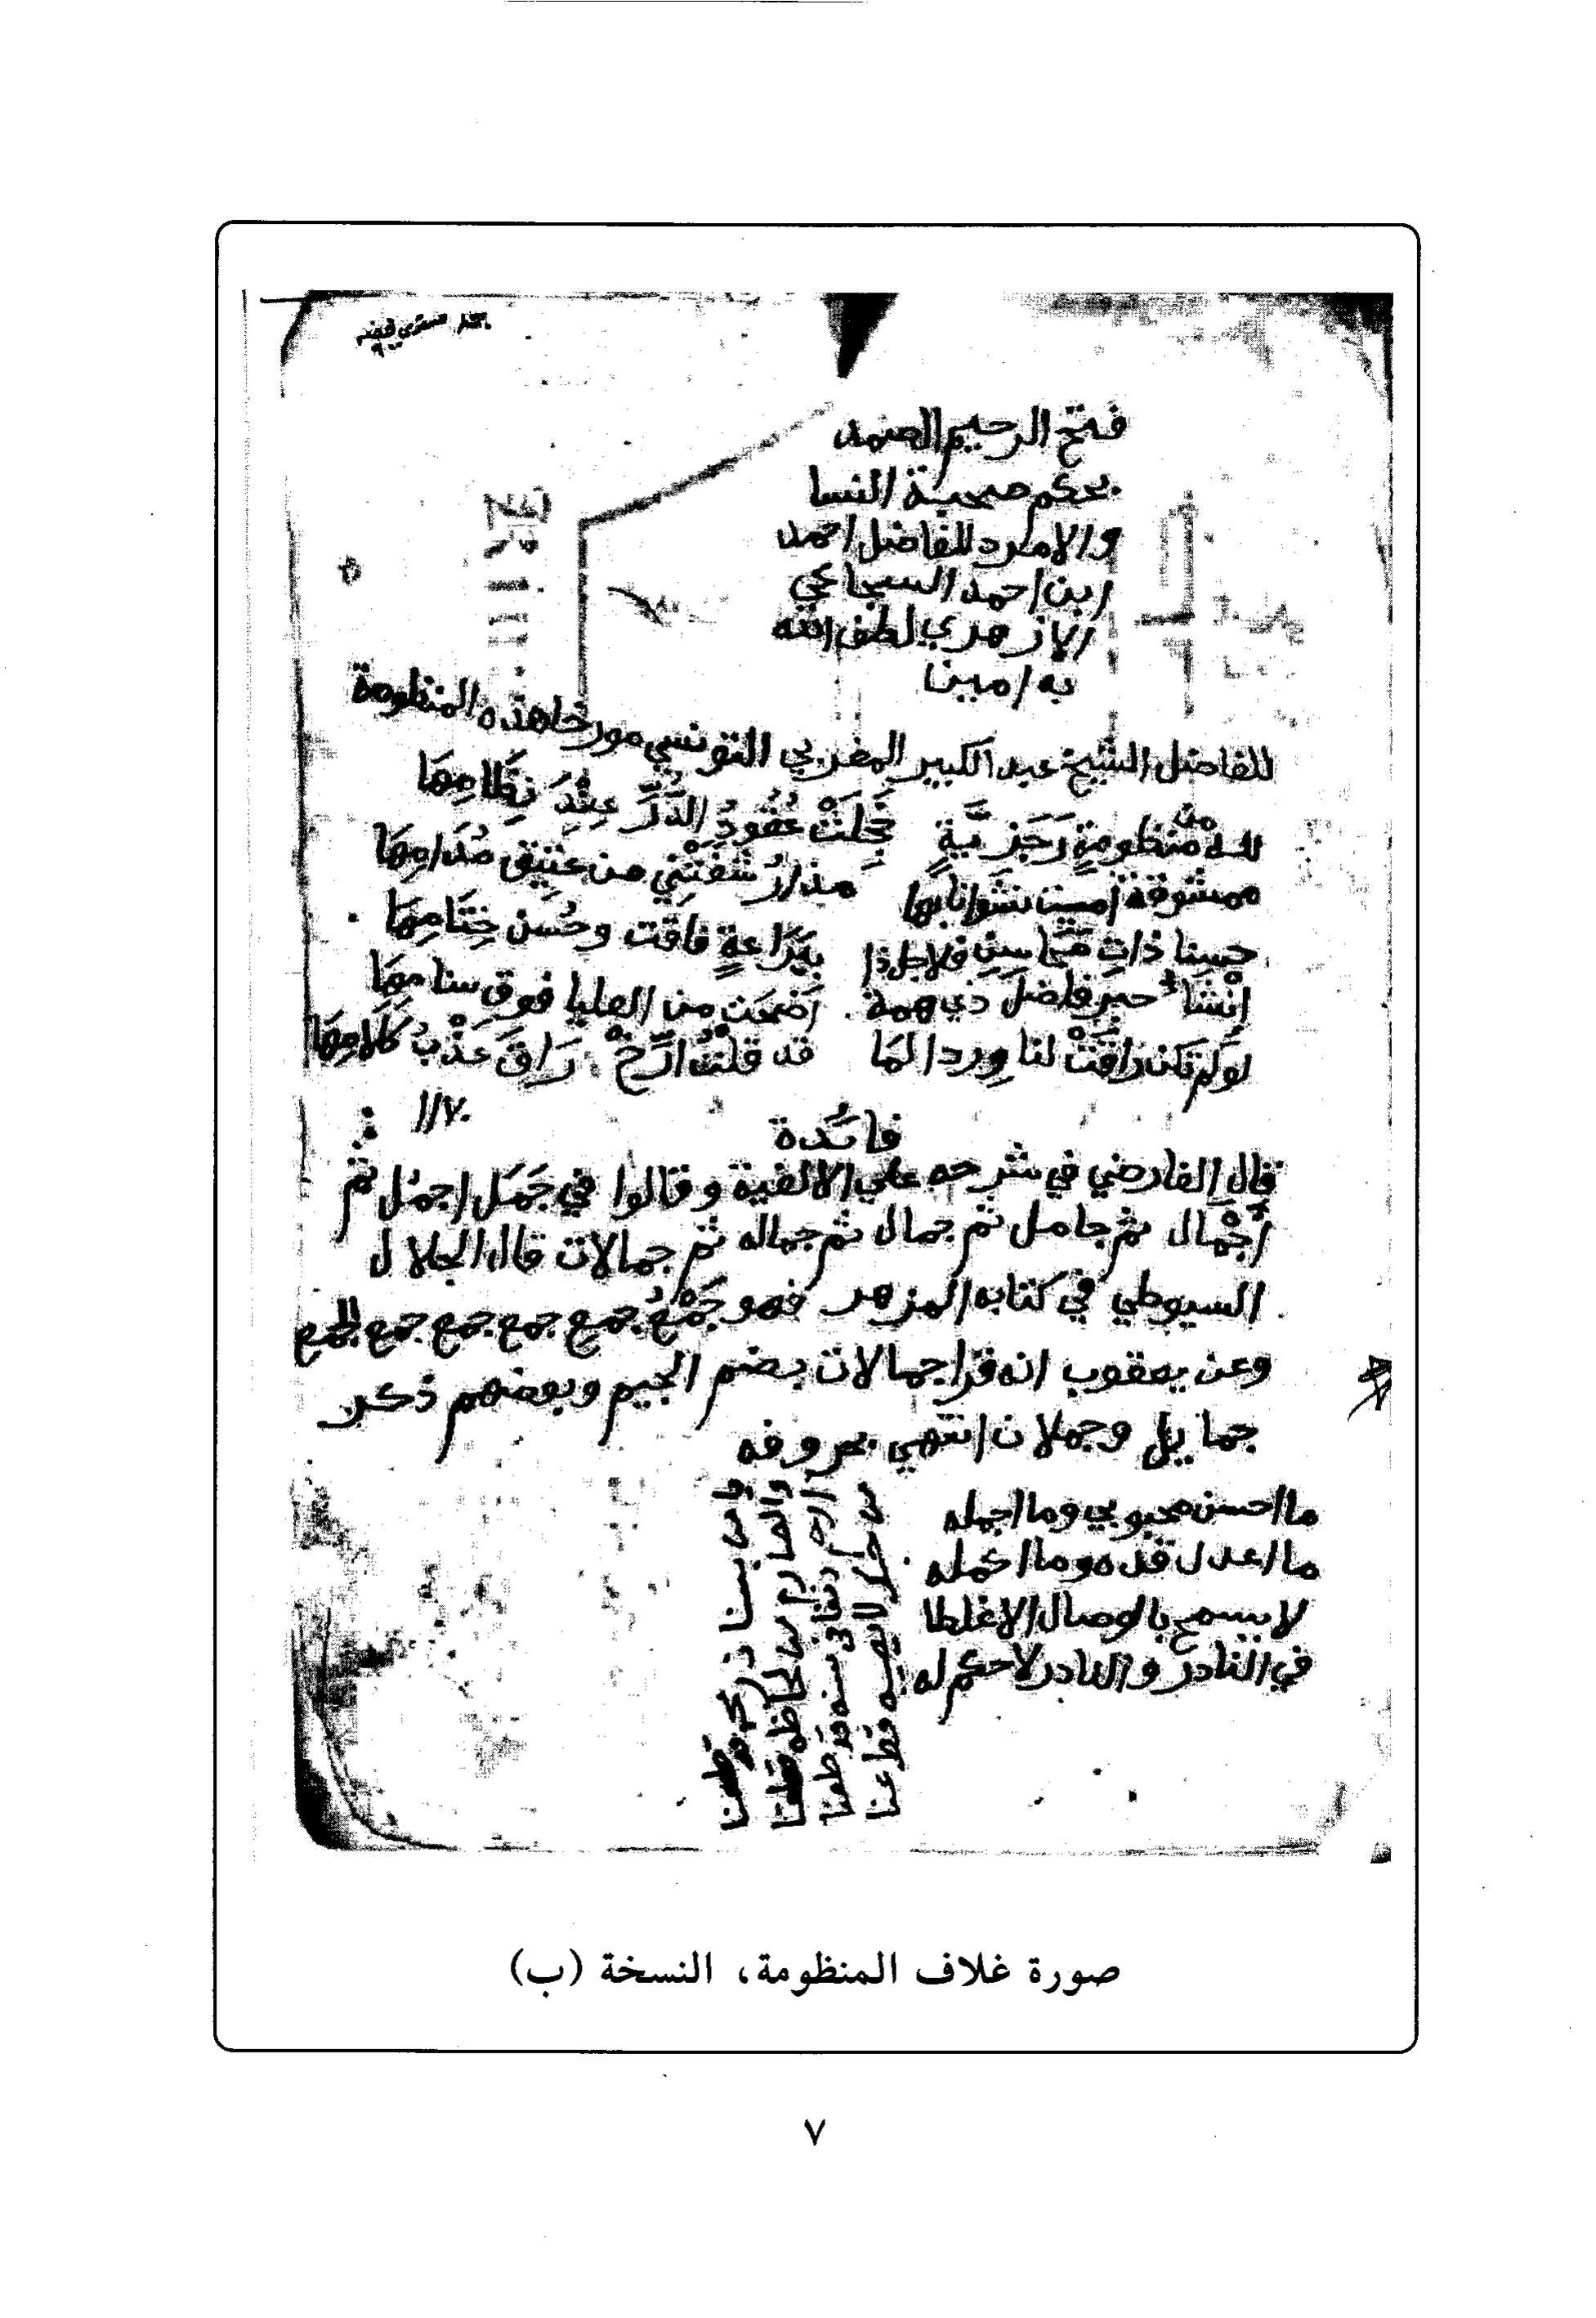 فتح الرحيم الصمد
بحكم صحبة النسا
والامرد للفاضل احمد
ابن احمد السجاعي
الازهري لطف الله
به امين
للفاضل الشيخ عبد الكبير المغربي التونسي مورخا هذه المنظومة
لله من منظومةٍ رَجَزِيَّةٍ خَجِلَتْ عُقُودُ الدُّرِّ عِنْدَ نِظَامِهَا
ممشوقة امست نشوانا بها مذ ارْشَفَتْنِي من عَتِيقِ مُدَامِهَا
حسنا ذاتِ مَحَاسِنٍ فلاجل ذا بِبَرَاعةٍ فاقت وحُسنِ خِتَامِهَا
إنْشَاء حبر فاضل ذي همة اضحت من العليا فوق سنامِهَا
لو لم تكن راقَتْ لنا وِردا لمَا قد قلتُ ارِّخْ رَاقَ عَذْبُ كَلَامِهَا
١١٧٠
فائدة
قال الفارضي في شرحه علي الالفية وقالوا في جَمَل اجمُل ثم
أجْمال ثم جامل ثم جمال ثم جماله ثم جمالات قال الجلال
السيوطي في كتابه المزهر فهو جَمْعُ جمع جمع جمع جمع الجمع
وعن يعقوب انه قرا جمالات بضم الجيم وبعضهم ذكر
جمايل وجملان انتهي بحروفه
ما احسن محبوبي وما اجمله
ما اعدل قده وما اكمله
لا يسمح بالوصال الا غلطا
في النادر والنادر لا حكم له
صورة غلاف المنظومة، النسخة (ب)
٧